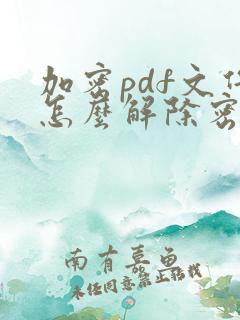 加密pdf文件
怎麼解除密
南有嘉魚
未经同意禁止转载